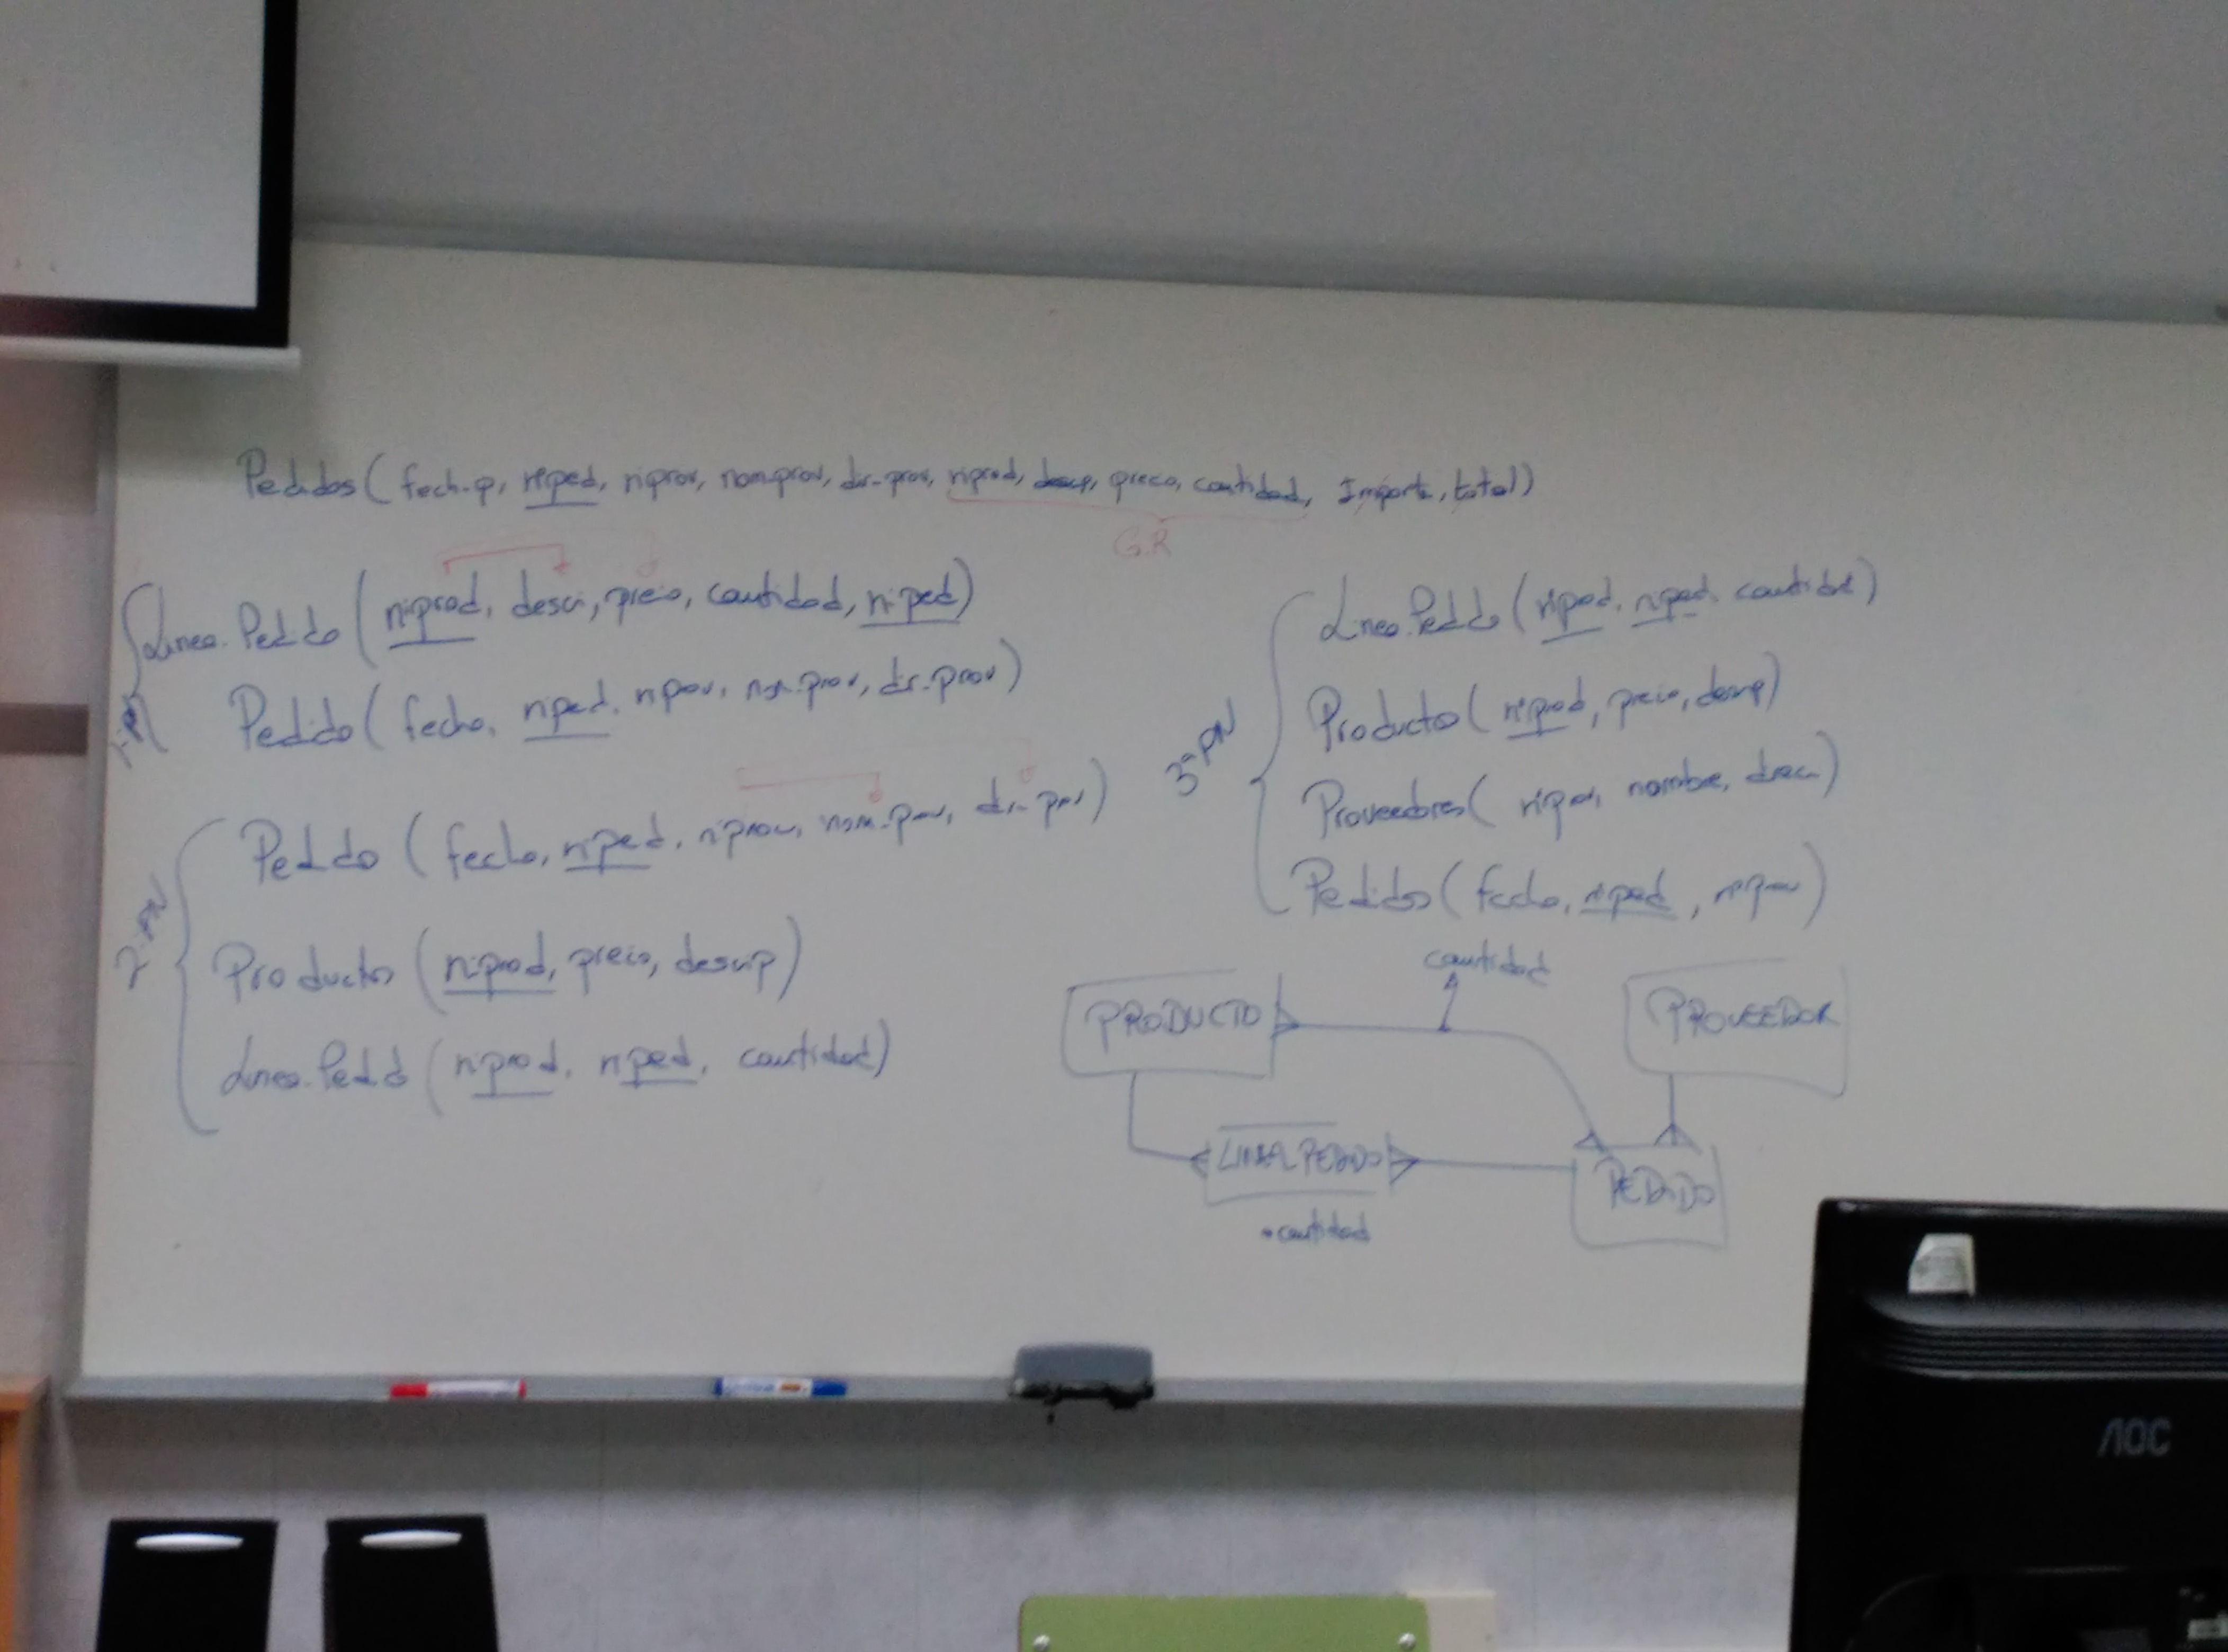 Pedidos (fech-p, nºped, nºprov, nom.prov, dir-prov, nºprod, descp, precio, cantidad, Importe, total)
G.R
1ªFN
Linea.Pedido (nºprod, descri, precio, cantidad, nºped)
Pedido (fecha, nºped, nºprov, nom.prov, dir.prov)
2ªFN
Pedido (fecha, nºped, nºprov, nom.prov, dir-prov)
Productos (nºprod, precio, descrip)
Linea.Pedido (nºprod, nºped, cantidad)
3ªFN
Linea.Pedido (nºprod, nºped, cantidad)
Productos (nºprod, precio, descrip)
Proveedores (nºprov, nombre, direc.)
Pedidos (fecha, nºped, nºprov)
cantidad
PRODUCTO
PROVEEDOR
LINEA PEDIDO
PEDIDO
• cantidad
AOC